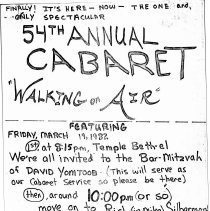 FINALLY! IT'S HERE - NOW - THE ONE and,
ONLY SPECTACULAR
54TH ANNUAL
CABARET
"WALKING on AIR"
FEATURING
FRIDAY, MARCH 19, 1982
1st at 8:15pm, Temple Bethel
We're all invited to the Bar-Mitzvah
of DAVID YOMTOOB - (This will serve as
our Cabaret Service so please be there)
then, around 10:00pm (or so)
move on to